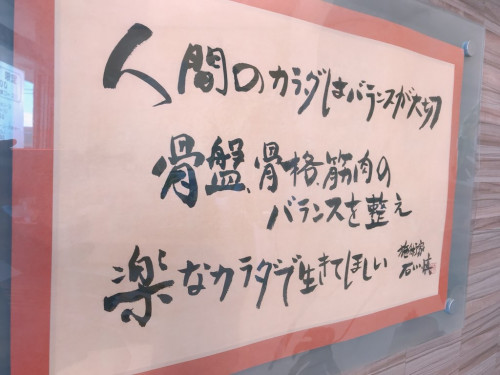 人間のカラダはバランスが大切
骨盤、骨格、筋肉の
バランスを整え
楽なカラダで生きてほしい
施術家
石川